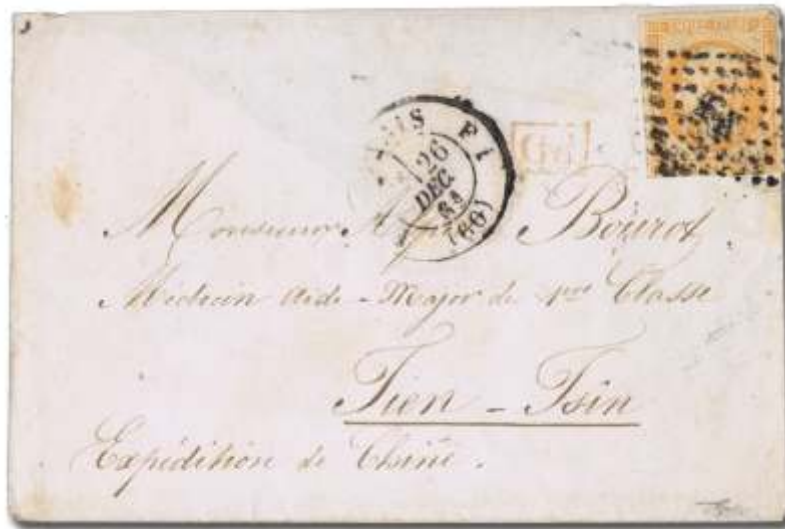 PARIS F1
26
DEC.
61
(60)
PD
Monsieur Bourot
Médecin Aide-Major de 1ere Classe
Tien-Tsin
Expédition de Chine.